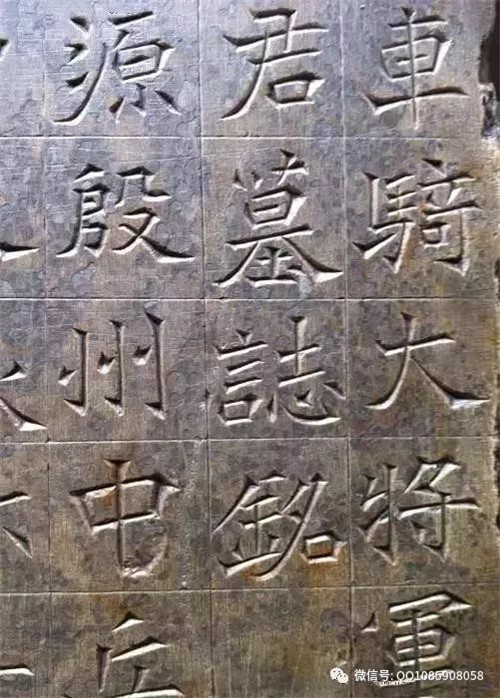 車騎大将軍
君墓誌銘
源殷州中兵
微信号: QQ1085908058